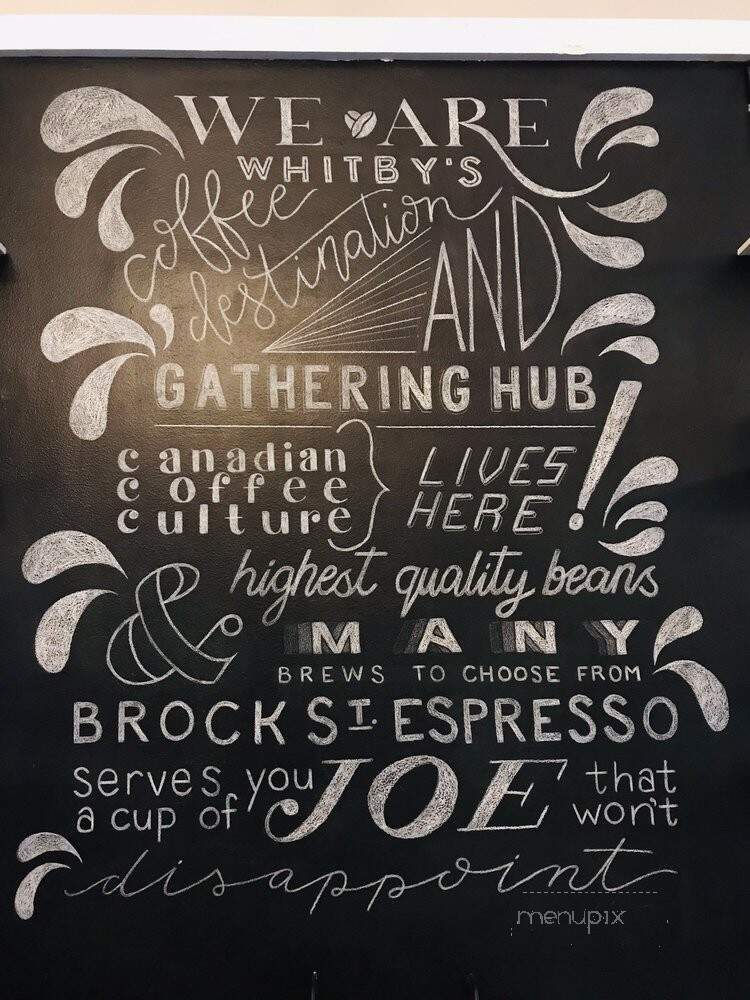 WE ARE
WHITBY'S
coffee
destination AND
GATHERING HUB
canadian
coffee
culture
LIVES
HERE!
& highest quality beans
MANY
BREWS TO CHOOSE FROM
BROCK ST. ESPRESSO
serves you
a cup of
JOE
that
won't
disappoint
menupix